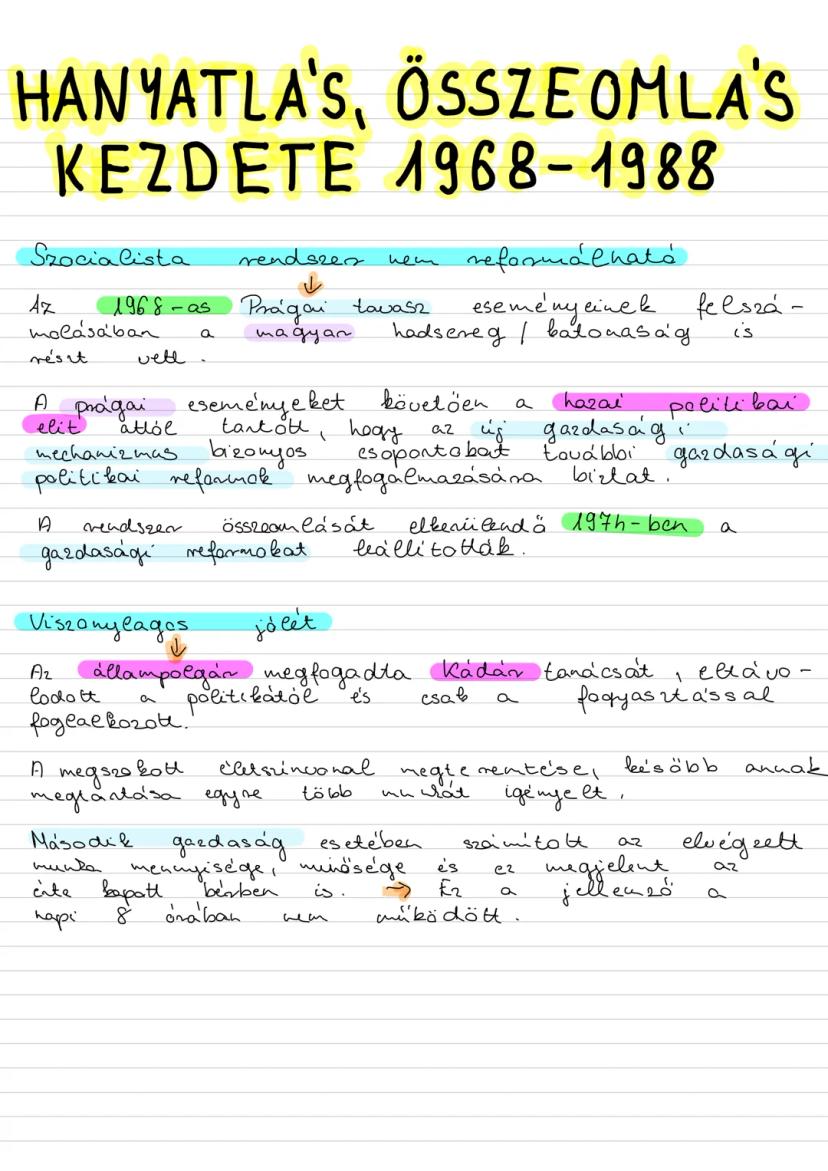 HANYATLÁS, ÖSSZEOMLÁS
KEZDETE 1968-1988
Szocialista rendszer nem reformálható
↓
Az 1968-as Prágai tavasz eseményeinek felszá-
molásában a magyar hadsereg / katonaság is
részt vett.
A prágai eseményeket követően a hazai politikai
elit attól tartott, hogy az új gazdasági
mechanizmus bizonyos csoportokat további gazdasági
politikai reformok megfogalmazására biztat.
A rendszer összeomlását elkerülendő 1974-ben a
gazdasági reformokat leállították.
Viszonylagos jólét
↓
Az állampolgár megfogadta Kádár tanácsát, eltávo-
lodott a politikától és csak a fogyasztással
foglalkozott.
A megszokott életszínvonal megteremtése, később annak
megtartása egyre több munkát igényelt.
Második gazdaság esetében számított az elvégzett
munka mennyisége, minősége és ez megjelent az
érte kapott bérben is. → Ez a jellemző a
napi 8 órában nem működött.